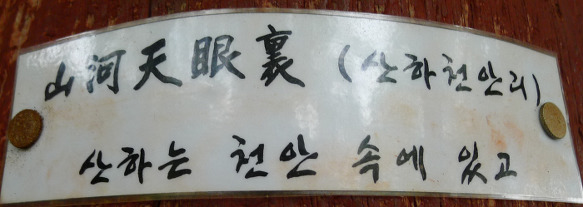 山河天眼裏 (산하천안리)
산하는 천안 속에 있고